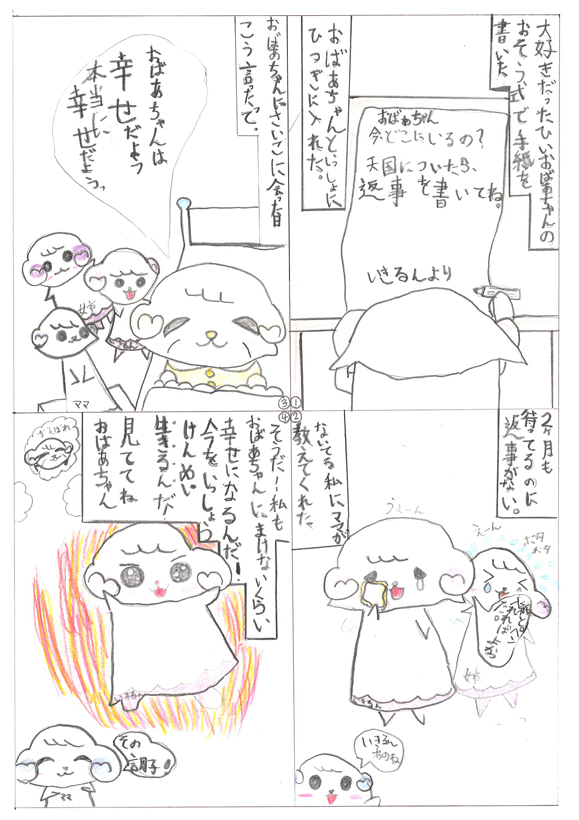 大好きだったひいおばあちゃんの
おそう式で手紙を
書いた
おばあちゃん
今どこにいるの?
天国についたら、
返事を書いてね。
いきるんより
おばあちゃんといっしょに
ひつぎに入れた。
①
2ヶ月も
待ってるのに
返事がない。
えーん
ポタ
ポタ
うえーん
姉
ないてる私に、ママが
教えてくれた。
いきるん
あのね
②
おばあちゃんにさいごに会った日
こう言ったって。
おばあちゃんは
幸せだよっ
本当に
幸せだよっ
姉
ママ
③
そうだー私も
おばあちゃんに、まけないくらい
幸せになるんだー!
今をいっしょう
けんめい
生きるんだ!
見ててね
おばあちゃん
がんばれ
その
調子!
ママ
④